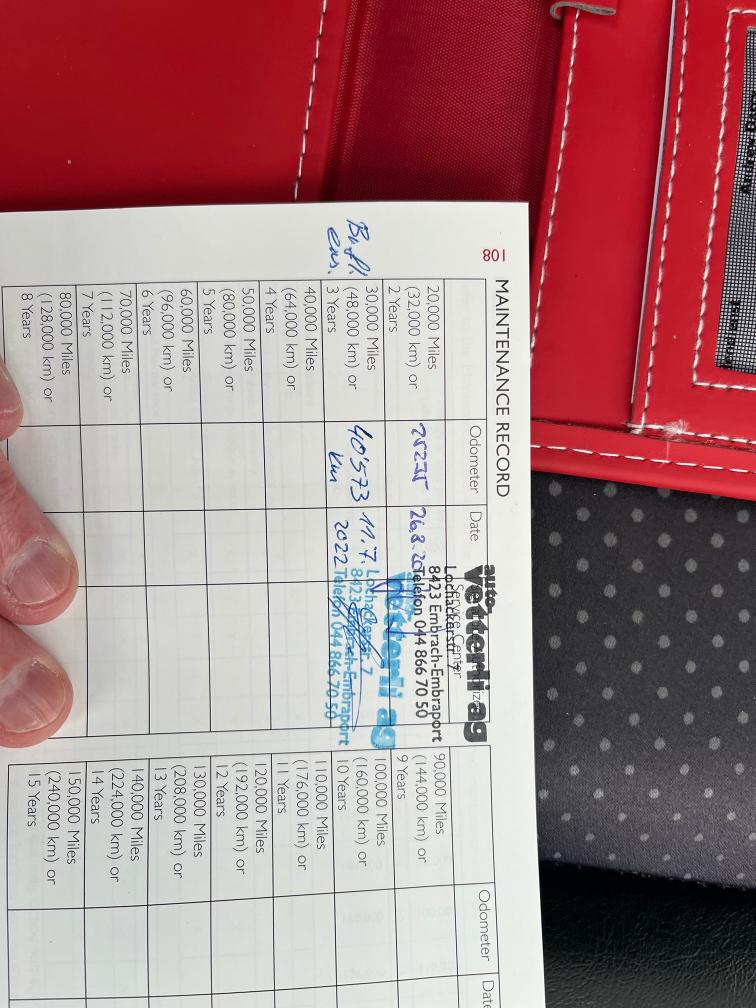 108
MAINTENANCE RECORD
Odometer Date
auto-
vetterli ag
Service Center
Lochackerstr. 7
8423 Embrach-Embraport
Telefon 044 866 70 50
20,000 Miles
(32,000 km) or
2 Years
26.8.20
30,000 Miles
(48,000 km) or
3 Years
40'573
km
11.7.
2022
vetterli ag
Lochackerstr. 7
8423 Embrach-Embraport
Telefon 044 866 70 50
40,000 Miles
(64,000 km) or
4 Years
50,000 Miles
(80,000 km) or
5 Years
60,000 Miles
(96,000 km) or
6 Years
70,000 Miles
(112,000 km) or
7 Years
80,000 Miles
(128,000 km) or
8 Years
Odometer Date
90,000 Miles
(144,000 km) or
9 Years
100,000 Miles
(160,000 km) or
10 Years
110,000 Miles
(176,000 km) or
11 Years
120,000 Miles
(192,000 km) or
12 Years
130,000 Miles
(208,000 km) or
13 Years
140,000 Miles
(224,000 km) or
14 Years
150,000 Miles
(240,000 km) or
15 Years